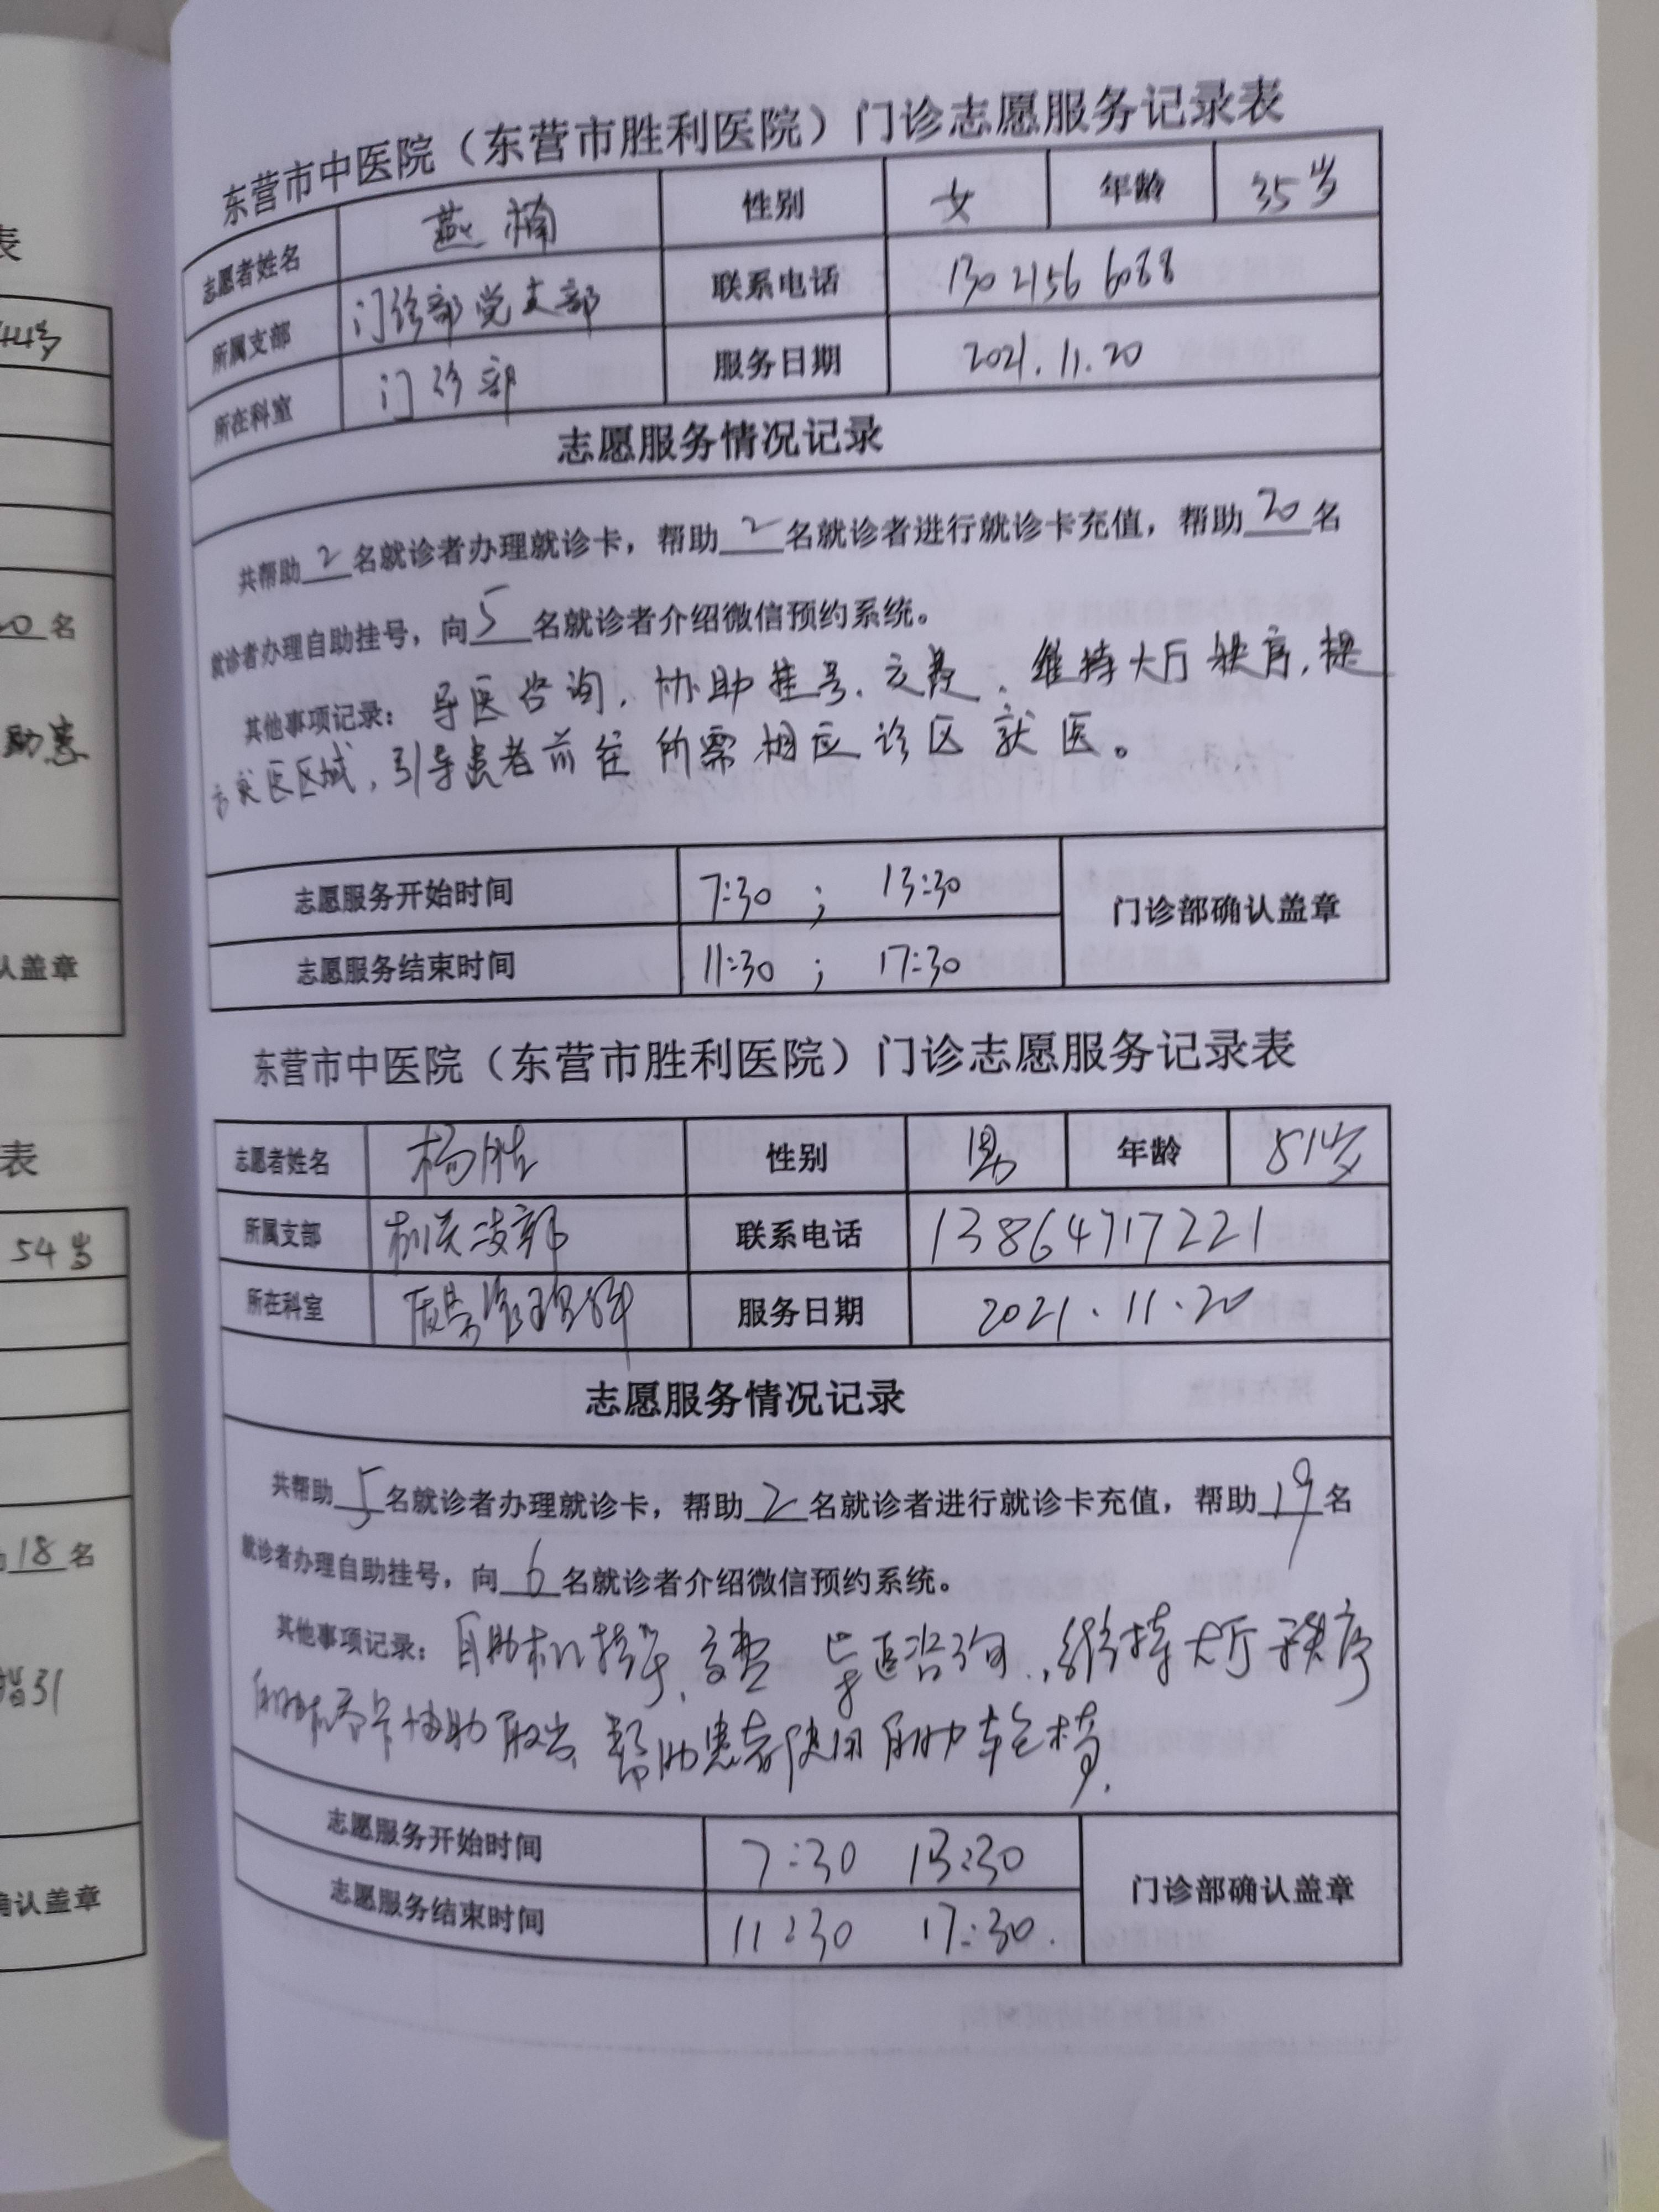 表
44岁
20名
助患
认盖章
表
54岁
18名
指引
确认盖章
东营市中医院（东营市胜利医院）门诊志愿服务记录表
志愿者姓名 燕楠 性别 女 年龄 35岁
所属支部 门诊部党支部 联系电话 130 2156 6088
所在科室 门诊部 服务日期 2021.11.20
志愿服务情况记录
共帮助2名就诊者办理就诊卡，帮助2名就诊者进行就诊卡充值，帮助20名
就诊者办理自助挂号，向5名就诊者介绍微信预约系统。
其他事项记录：导医咨询，协助挂号、交费，维持大厅秩序，提
示就医区域，引导患者前往所需相应诊区就医。
志愿服务开始时间 7:30 ; 13:30 门诊部确认盖章
志愿服务结束时间 11:30 ; 17:30
东营市中医院（东营市胜利医院）门诊志愿服务记录表
志愿者姓名 杨胜 性别 男 年龄 51岁
所属支部 机关支部 联系电话 13864717221
所在科室 质量管理科 服务日期 2021.11.20
志愿服务情况记录
共帮助5名就诊者办理就诊卡，帮助2名就诊者进行就诊卡充值，帮助19名
就诊者办理自助挂号，向6名就诊者介绍微信预约系统。
其他事项记录：自助机挂号、交费 导医咨询，维持大厅秩序
卡协助取出 帮助患者使用自助轮椅.
志愿服务开始时间 7:30 13:30 门诊部确认盖章
志愿服务结束时间 11:30 17:30.